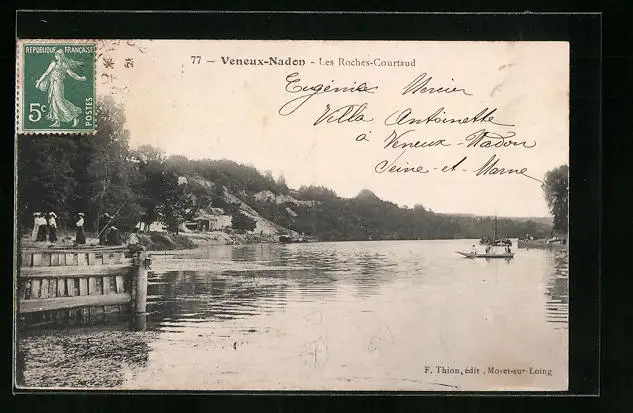 77 — Veneux-Nadon - Les Roches-Courtaud
REPUBLIQUE FRANÇAISE
5c
POSTES
Eugénie Mercier
Villa Antoinette
à Veneux-Nadon
Seine-et-Marne
F. Thion, édit, Moret-sur-Loing